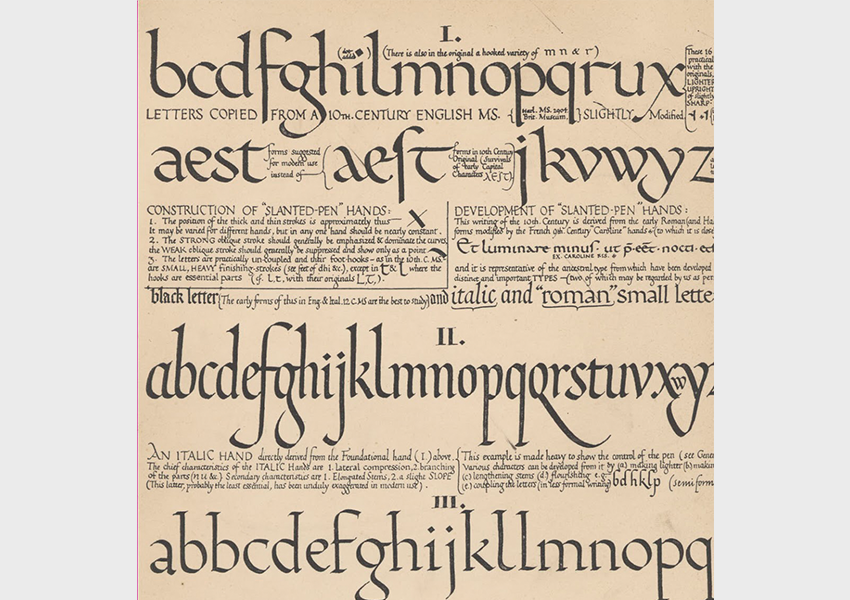 I.
(There is also in the original a hooked variety of m n & r)
bcdfghilmnopqrux
These 16
practical
with the
originals,
LIGHTER
UPRIGHT
of slightly
SHARP
LETTERS COPIED FROM A 10TH. CENTURY ENGLISH MS. { Harl. MS. 2904. Brit. Museum. } SLIGHTLY Modified.
aest
forms suggested
for modern use
instead of
aeſt
forms in 10th Century
Original (Survivals
of early Capital
Characters
jkvwyz
CONSTRUCTION OF "SLANTED-PEN" HANDS:
1. The position of the thick and thin strokes is approximately thus
It may be varied for different hands, but in any one hand should be nearly constant.
2. The STRONG oblique stroke should generally be emphasized & dominate the curves,
the WEAK oblique stroke should generally be suppressed and show only as a point
3. The letters are practically un-coupled and their foot-hooks – as in the 10th. C. MS.
are SMALL, HEAVY finishing-strokes (see feet of dhi &c.), except in t & l where the
hooks are essential parts (cf. L, t, with their originals L, T,).
DEVELOPMENT OF "SLANTED-PEN" HANDS:
This writing of the 10th. Century is derived from the early Roman (and Ha
forms modified by the French 9th. Century "Caroline" hands to which it is close
Et luminare minuſ. ut p̄eēt. nocti. et
EX. CAROLINE MS.
and it is representative of the ancestral type from which have been developed
distinct and important TYPES – (two of which may be regarded by us as per
black letter (The early forms of this in Eng. & Ital. 12 C. MS are the best to study) and italic, and "roman" small lette
II.
abcdefghijklmnopqqrstuvxwyz
AN ITALIC HAND directly derived from the Foundational hand (I.) above.
The chief characteristics of the ITALIC Hands are 1. lateral compression, 2. branching
of the parts (n u &c.) Secondary characteristics are 1. Elongated Stems, 2. a slight SLOPE
(This latter, probably the least essential, has been unduly exaggerated in modern use).
This example is made heavy to show the control of the pen (see Gener
Various characters can be developed from it by (a) making lighter (b) makin
(c) lengthening stems (d) flourishing e.g.
(e) coupling the letters (in less formal writing) bdhklp (semi form
III.
abbcdefghijkllmnopq